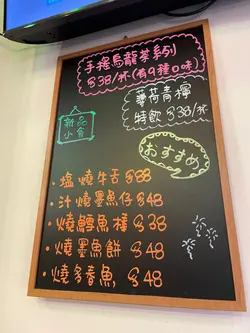 手搖烏龍茶系列
$38/杯(有9種口味)
薄荷青檸
特飲$38
新品
小食
おすすめ
・塩燒牛舌$88
・汁燒墨魚仔$48
・燒鱈魚棒$38
・燒墨魚餅$48
・燒多春魚$48